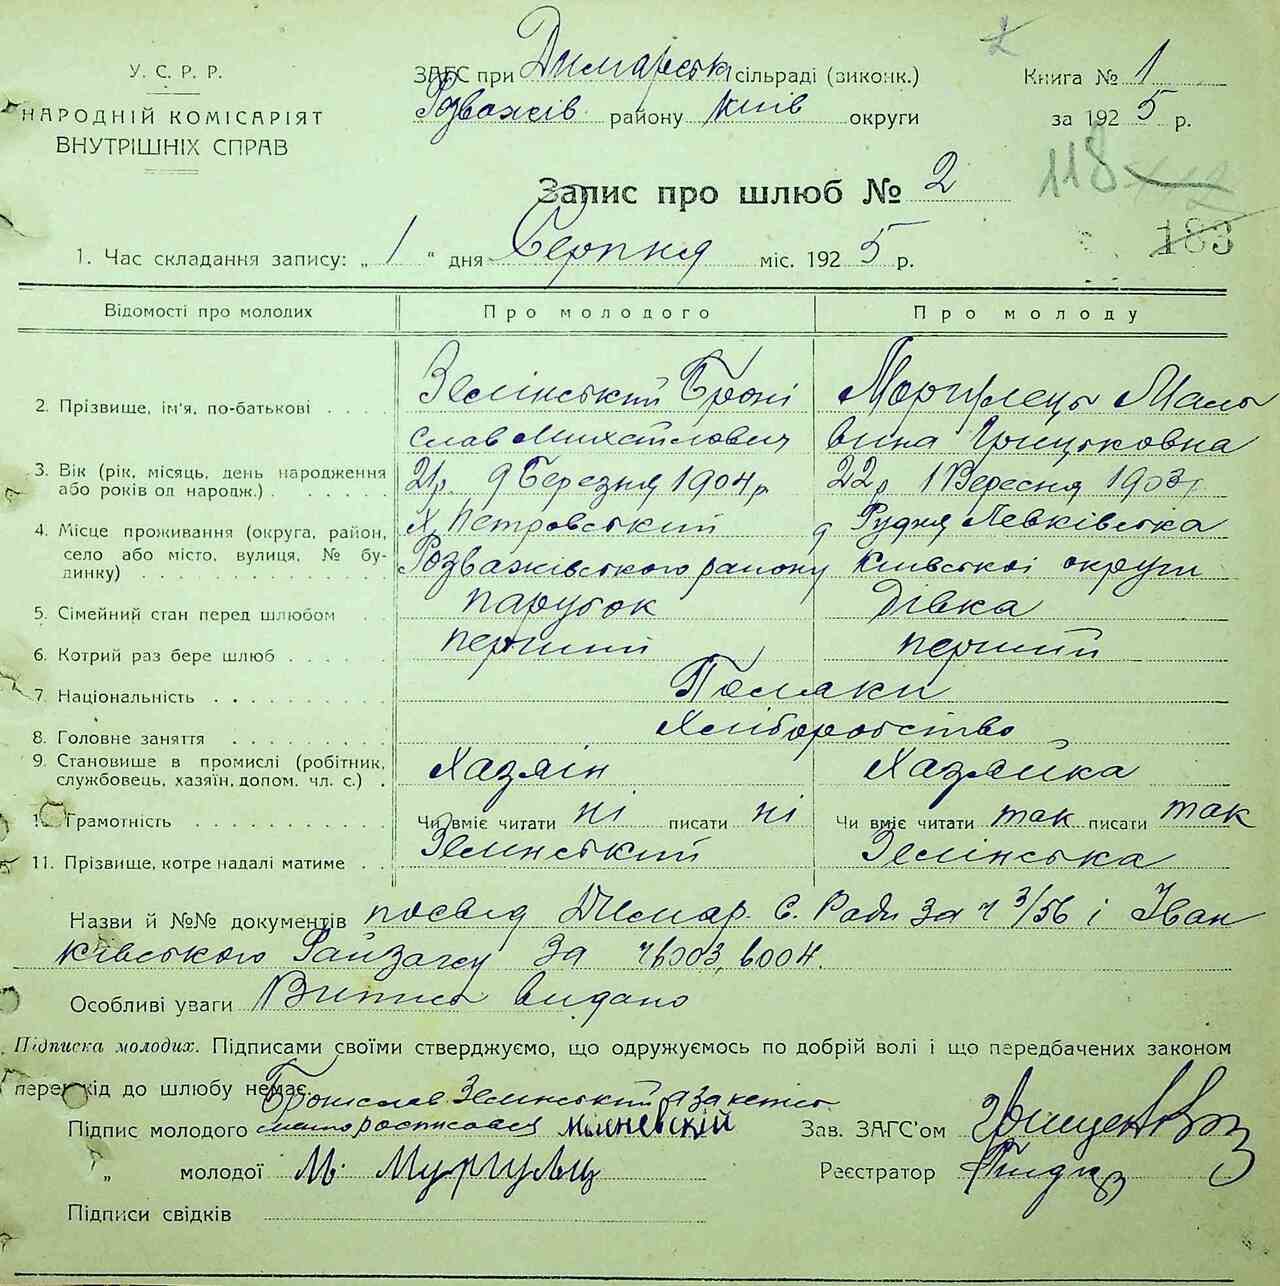 У. С. Р. Р.
НАРОДНІЙ КОМІСАРІЯТ
ВНУТРІШНІХ СПРАВ
ЗАГС при Димарськ сільраді (виконк.)
Розважів району Київ округи
Книга № 1
за 1925 р.
118
183
Запис про шлюб № 2
1. Час складання запису: „ 1 “ дня Серпня міс. 1925 р.
Відомості про молодих Про молодого Про молоду
2. Прізвище, ім'я, по-батькові Зелінський Броні Моргулець Маль
слав Михайлович вина Грицьковна
3. Вік (рік, місяць, день народження або років од народж.) 21 р. 9 Березня 1904 р 22 р 1 Вересня 1903 р
4. Місце проживання (округа, район, село або місто, вулиця, № будинку) х. Петровський д Рудня Левківська
Розважівського району Київської округи
5. Сімейний стан перед шлюбом парубок Дівка
6. Котрий раз бере шлюб перший перший
7. Національність Поляки
8. Головне заняття Хліборобство
9. Становище в промислі (робітник, службовець, хазяїн, допом. чл. с.) Хазяїн Хазяйка
Грамотність Чи вміє читати ні писати ні Чи вміє читати так писати так
11. Прізвище, котре надалі матиме Зелинський Зелінська
Назви й №№ документів посвід Димар. С. Ради за ч 3/56 і Іван
ківського Райзагсу за ч 6003, 6004.
Особливі уваги Випись видано
Підписка молодих. Підписами своїми стверджуємо, що одружуємось по добрій волі і що передбачених законом
перешкід до шлюбу немає.
Бронислав Зелинський а за його
Підпис молодого росписався
Зав. ЗАГС'ом
„ молодої М. Мургулец
Реєстратор
Підписи свідків